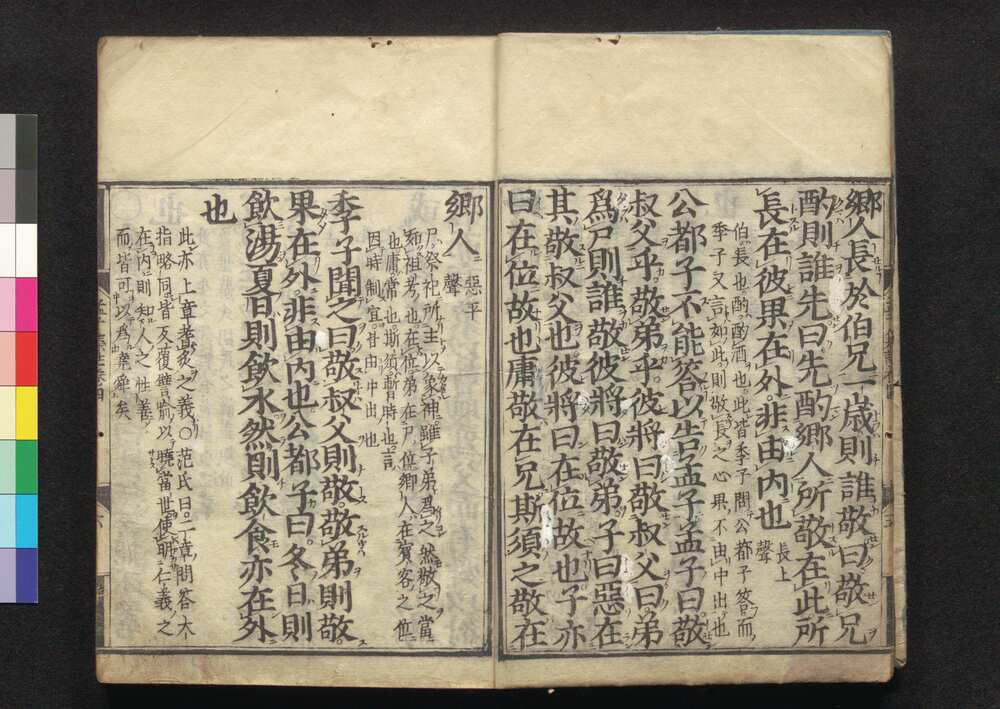 鄕人長於伯兄一歲則誰敬曰敬兄
酌則誰先曰先酌鄕人所敬在此所
長在彼果在外非由內也
長上
聲
伯長也酌酌酒也此皆季子問公都子答而
季子又言如此則敬長之心果不由中出也
公都子不能答以告孟子孟子曰敬
叔父乎敬弟乎彼將曰敬叔父曰弟
爲尸則誰敬彼將曰敬弟子曰惡在
其敬叔父也彼將曰在位故也子亦
曰在位故也庸敬在兄斯須之敬在
鄕人
惡平
聲
尸祭祀所主以象神雖子弟爲之然敬之當
如祖考也在位弟在尸位鄕人在賓客之位
也庸常也斯須暫時也言
因時制宜皆由中出也
季子聞之曰敬叔父則敬敬弟則敬
果在外非由內也公都子曰冬日則
飮湯夏日則飮水然則飮食亦在外
也
此亦上章耆炙之義○范氏曰二章問答大
指略同皆反覆譬喩以曉當世使明仁義之
在內則知人之性善
而皆可以爲堯舜矣